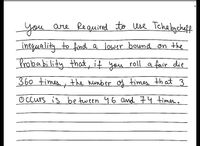 You are Required to use Tchebycheff
inequality to find a lower bound on the
Probability that, if you roll a fair die
360 times, the number of times that 3
occurs is between 46 and 74 times.